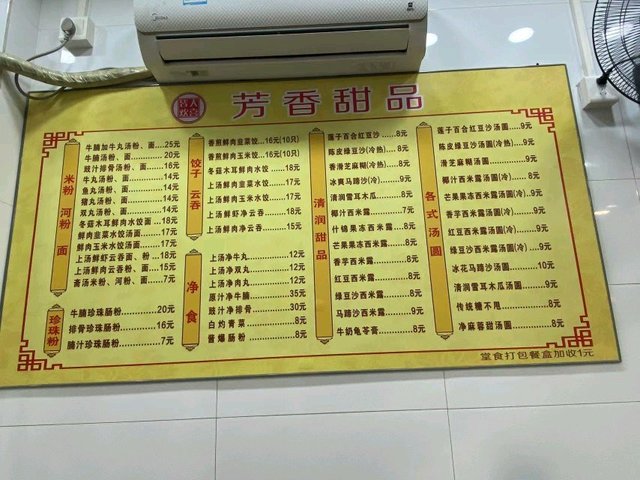 Midea
芳香甜品
米粉 河粉 面
牛腩加牛丸汤粉、面.....25元
牛腩汤粉、面.................20元
豉汁排骨汤粉、面..........16元
牛丸汤粉、面..................14元
鱼丸汤粉、面..................14元
猪丸汤粉、面..................14元
双丸汤粉、面..................14元
冬菇木耳鲜肉水饺面...18元
鲜肉韭菜水饺汤面.......17元
鲜肉玉米水饺汤面.......17元
上汤鲜虾云吞面、粉....18元
上汤鲜肉云吞粉、面....15元
斋汤米粉、河粉、面.....7元
珍珠粉
牛腩珍珠肠粉...............20元
排骨珍珠肠粉...............16元
腩汁珍珠肠粉...............7元
饺子 云吞
香煎鲜肉韭菜饺....16元(10只)
香煎鲜肉玉米饺....16元(10只)
冬菇木耳鲜肉水饺......18元
上汤鲜肉韭菜水饺......17元
上汤鲜肉玉米水饺......17元
上汤鲜虾净云吞..........18元
上汤鲜肉净云吞..........15元
净食
上汤净牛丸...............12元
上汤净双丸...............12元
上汤净肉丸...............12元
原汁净牛腩...............35元
豉汁净排骨...............30元
白灼青菜..................8元
酱爆肠粉..................8元
清润甜品
莲子百合红豆沙..........8元
陈皮绿豆沙(冷热)......8元
香滑芝麻糊(冷热)......8元
冰爽马蹄沙(冷)..........9元
清润雪耳木瓜..............8元
椰汁西米露..................7元
什锦果冻西米露..........8元
芒果果冻西米露..........8元
香芋西米露..................8元
红豆西米露..................8元
绿豆沙西米露..............8元
马蹄沙西米露..............9元
牛奶龟苓膏..................8元
各式汤圆
莲子百合红豆沙汤圆....9元
陈皮绿豆沙汤圆(冷热)....9元
香滑芝麻糊汤圆............9元
椰汁西米露汤圆(冷).......8元
芒果果冻西米露汤圆(冷)..9元
香芋西米露汤圆(冷).......9元
红豆西米露汤圆(冷).......9元
绿豆沙西米露汤圆(冷)....9元
冰花马蹄沙汤圆............10元
清润雪耳木瓜汤圆........9元
传统糖不甩..................8元
净麻蓉甜汤圆...............8元
堂食打包餐盒加收1元